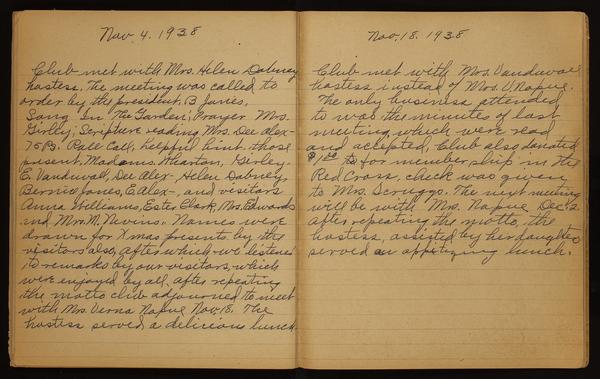 Nov. 4. 1938
Club met with Mrs. Helen Dabney
hostess. The meeting was called to
order by the president, B Jones.
Song In The Garden; Prayer Mrs.
Gerley; Scripture reading Mrs. Dee Alex-
Roll Call, helpful hint. Those
present, Madams. Wharton, Gerley-
E. Vanduvall, Dee Alex-, Helen Dabney,
Bernice Jones, E. Alex-, and visitors
Anna Williams, Ester Clark, Mrs. Edwards
and Mrs. M. Nevins. Names were
drawn for Xmas presents by the
visitors also, after which we listened
to remarks by our visitors, which
were enjoyed by all, after repeating
the motto club adjourned to meet
with Mrs. Verna Napue Nov-18. The
hostess served a delicious lunch.
Nov. 18. 1938
Club met with Mrs. Vanduvall
hostess instead of Mrs. V. Napue.
The only business attended
to was the minutes of last
meeting, which were read
and accepted, Club also donated
$1.00 to for membership in the
Red Cross, check was given
to Mrs. Scruggs. The next meeting
will be with Mrs. Napue Dec. 2
After repeating the motto, the
hostess, assisted by her daughter
served an appetizing lunch.